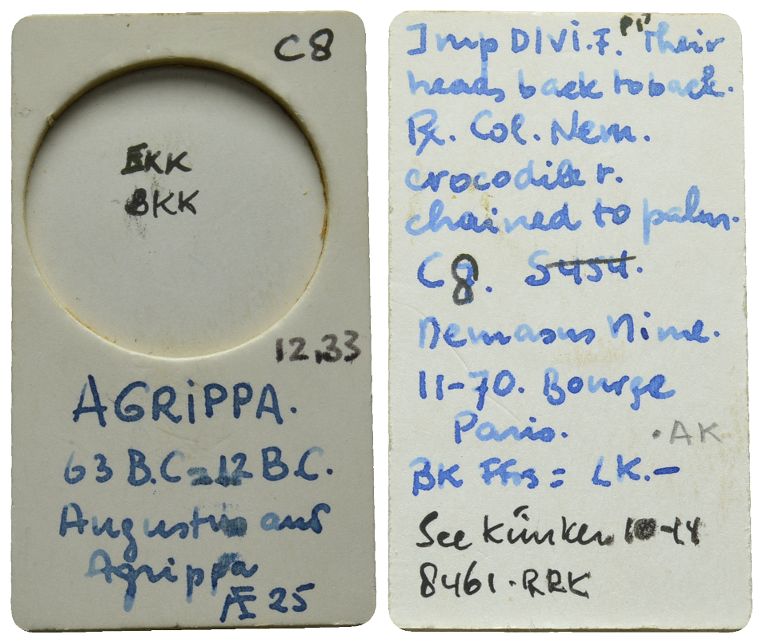 C8
EKK
BKK
12,33
AGRIPPA.
63 B.C=12 B.C.
Augustus and
Agrippa
Æ 25
Imp DIVI.F. PP Their
heads back to back.
R. Col. Nem.
crocodile r.
chained to palm.
C8. S454.
Nemasus Nime.
11-70. Bourge
Paris.
.AK
BK Ffrs = LK.-
See Künker 10-14
8461.RRK